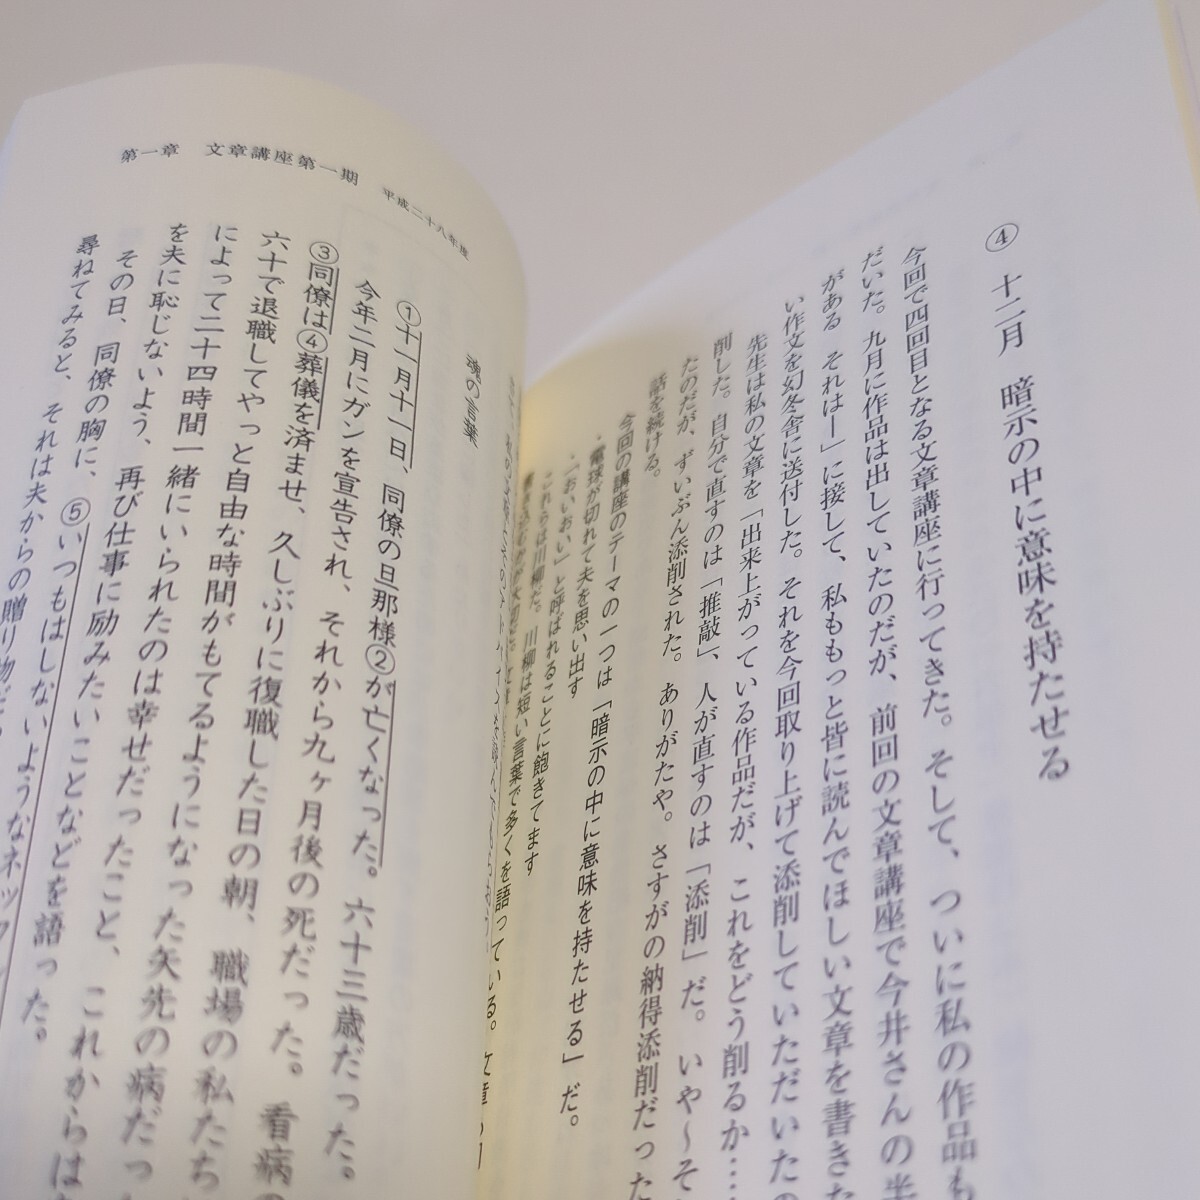 ④　十二月　暗示の中に意味を持たせる
今回で四回目となる文章講座に行ってきた。そして、ついに私の作品も
だいた。九月に作品は出していたのだが、前回の文章講座で今井さんの
がある　それはー」に接して、私ももっと皆に読んでほしい文章を書きた
い作文を幻冬舎に送付した。それを今回取り上げて添削していただいたの
先生は私の文章を「出来上がっている作品だが、これをどう削るか……
削した。自分で直すのは「推敲」、人が直すのは「添削」だ。いや～そ
たのだが、ずいぶん添削された。ありがたや。さすがの納得添削だった
話を続ける。
今回の講座のテーマの一つは「暗示の中に意味を持たせる」だ。
・電球が切れて夫を思い出す
・「おいおい」と呼ばれることに飽きてます
これらは川柳だ。川柳は短い言葉で多くを語っている。文章
第一章　文章講座第一期　平成二十八年度
魂の言葉
①十一月十一日、同僚の旦那様②が亡くなった。六十三歳だった。
今年二月にガンを宣告され、それから九ヶ月後の死だった。看病
③同僚は④葬儀を済ませ、久しぶりに復職した日の朝、職場の私たち
六十で退職してやっと自由な時間がもてるようになった矢先の病だっ
によって二十四時間一緒にいられたのは幸せだったこと、これからは
を夫に恥じないよう、再び仕事に励みたいことなどを語った。
その日、同僚の胸に、⑤いつもはしないようなネック
尋ねてみると、それは夫からの贈り物だ